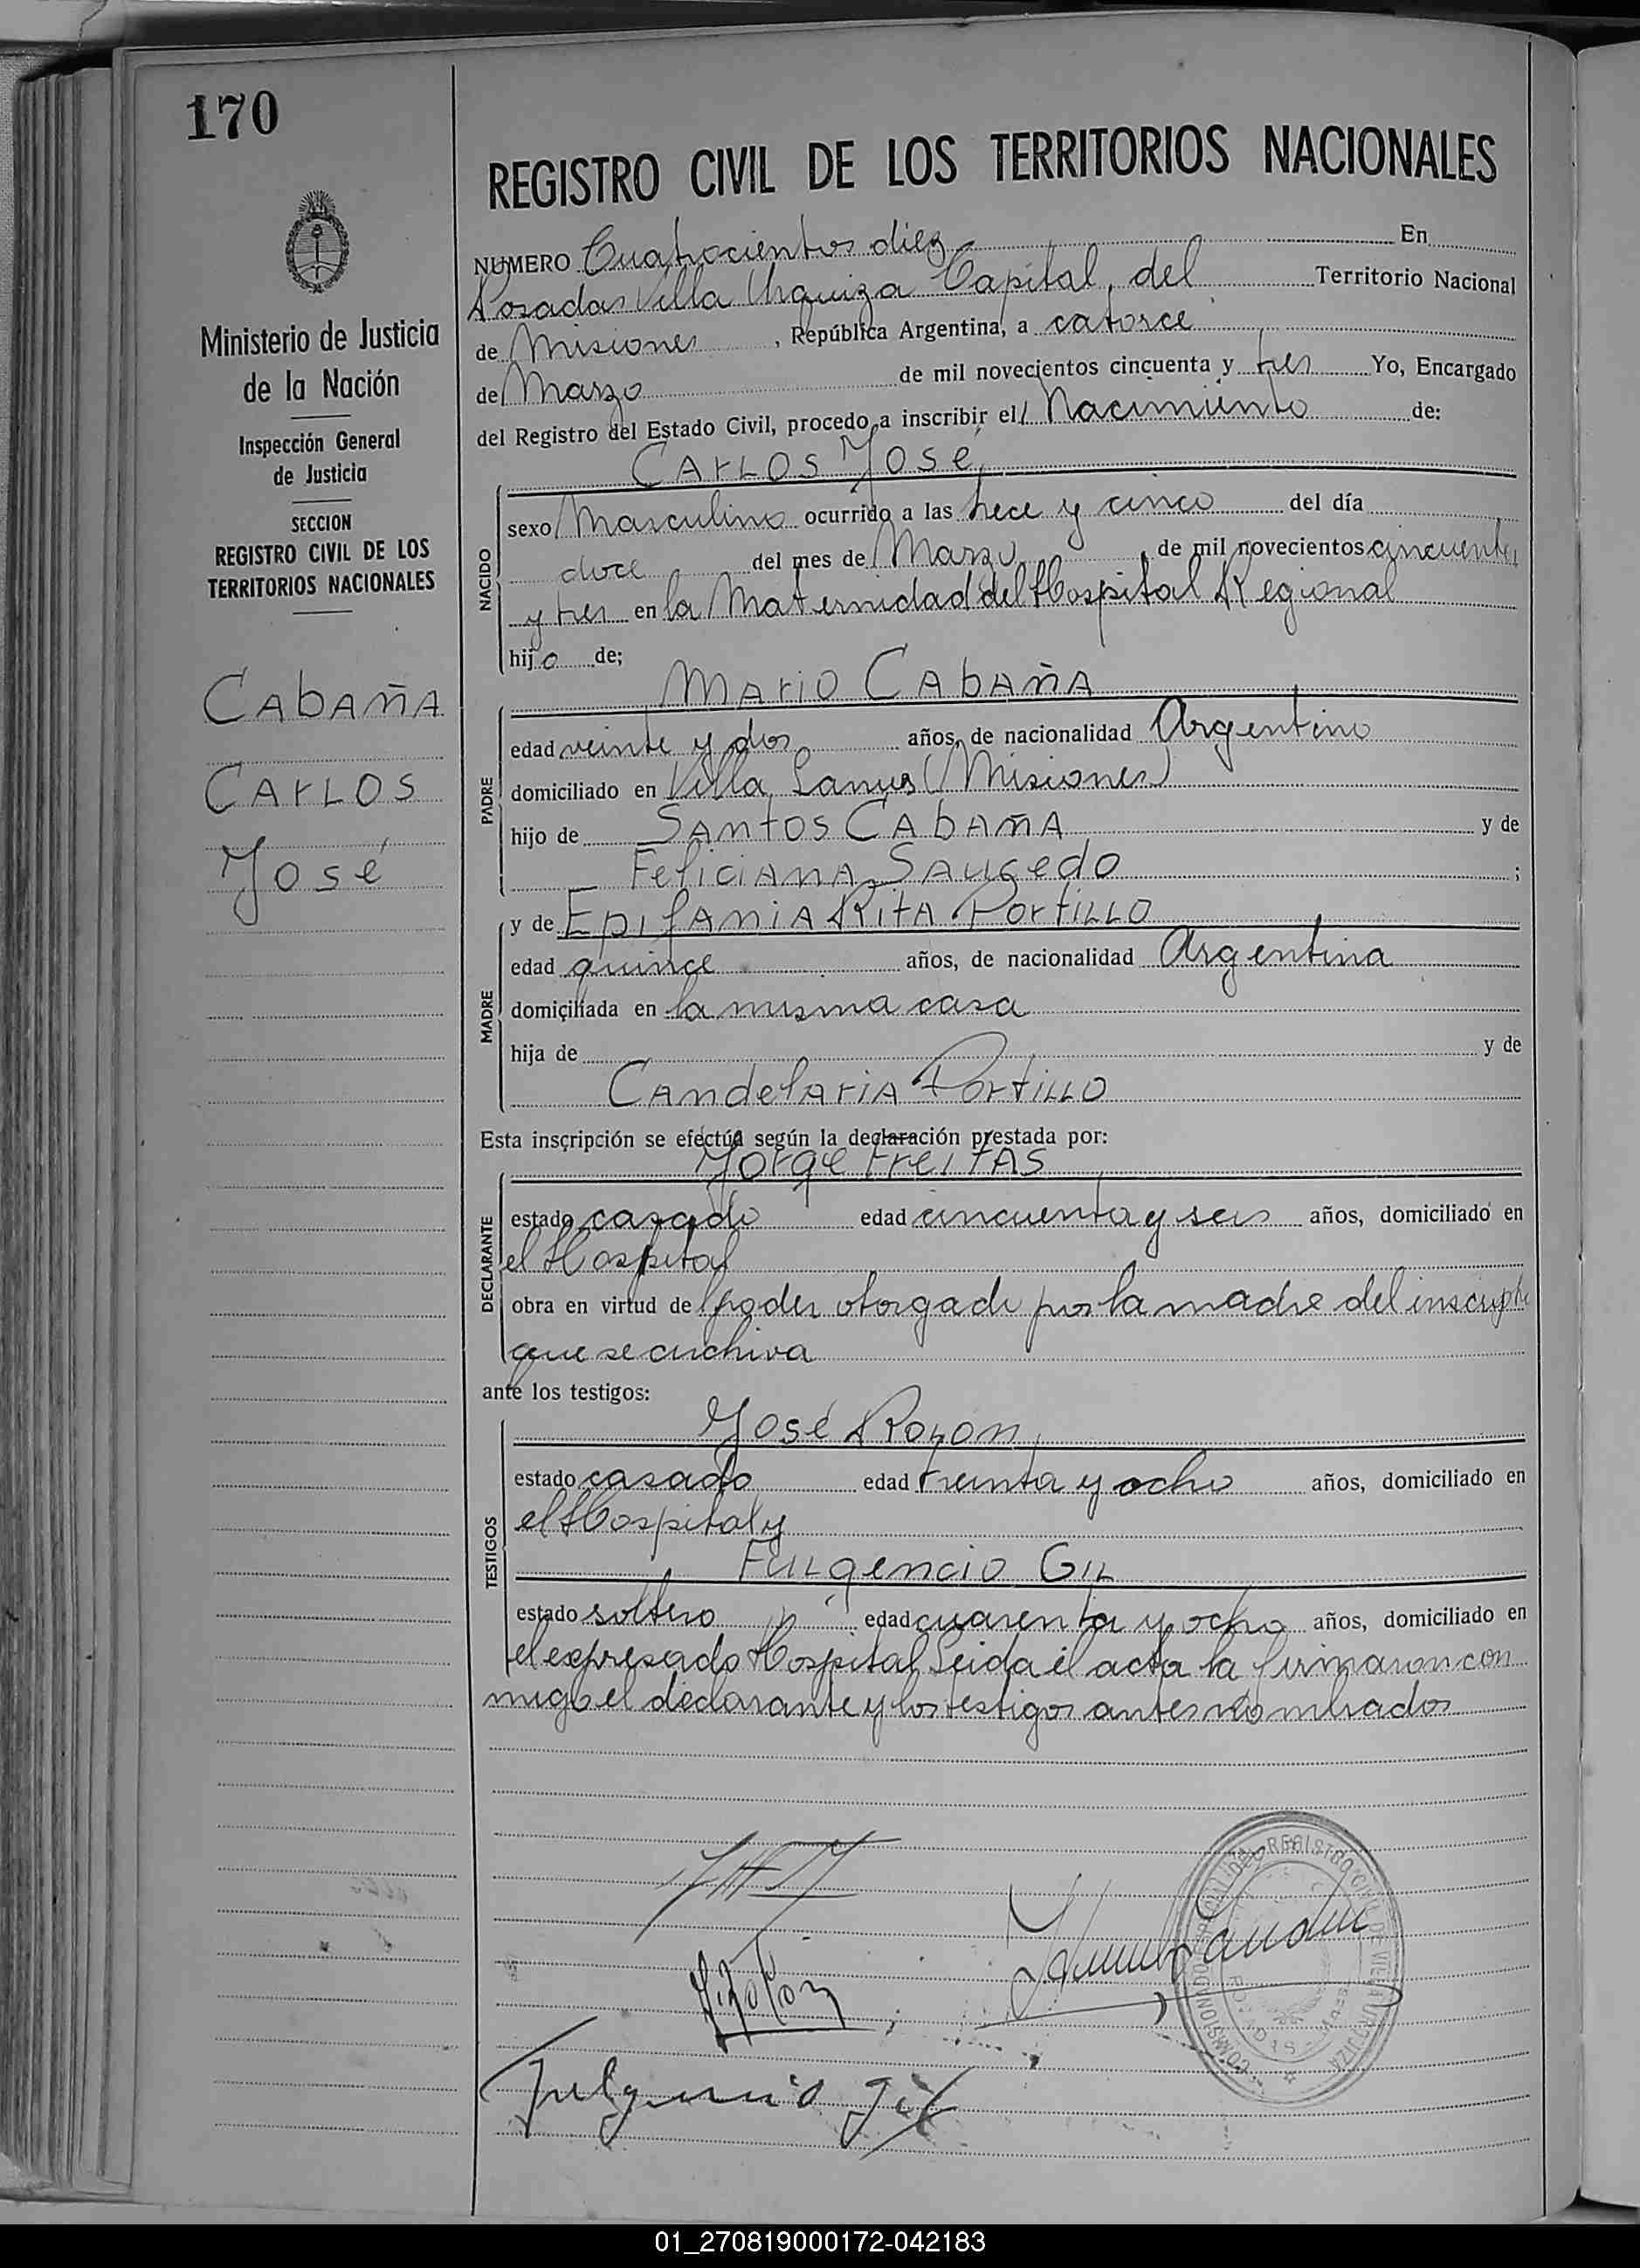 170
Ministerio de Justicia
de la Nación
Inspección General
de Justicia
SECCION
REGISTRO CIVIL DE LOS
TERRITORIOS NACIONALES
CABAÑA
CARLOS
José
REGISTRO CIVIL DE LOS TERRITORIOS NACIONALES
NUMERO Cuatrocientos diez En
Posadas Villa Urquiza Capital, del Territorio Nacional
de Misiones, República Argentina, a catorce
de Marzo de mil novecientos cincuenta y tres Yo, Encargado
del Registro del Estado Civil, procedo a inscribir el Nacimiento de:
CARLOS José
NACIDO
sexo Masculino ocurrido a las trece y cinco del día
doce del mes de Marzo, de mil novecientos cincuenta
y tres en la Maternidad del Hospital Regional
hijo de;
MARIO CABAÑA
PADRE
edad veinte y dos años, de nacionalidad Argentino
domiciliado en Villa Lanus (Misiones)
hijo de SANTOS CABAÑA y de
FELICIANA SAUCEDO;
MADRE
y de EPIFANIA RITA PORTILLO
edad quince años, de nacionalidad Argentina
domiciliada en la misma casa
hija de y de
CANDELARIA PORTILLO
Esta inscripción se efectúa según la declaración prestada por:
Jorge FREITAS
DECLARANTE
estado casado edad cincuenta y seis años, domiciliado en
el Hospital
obra en virtud de poder otorgado por la madre del inscripto
que se archiva
ante los testigos:
TESTIGOS
José
estado casado edad treinta y ocho años, domiciliado en
el Hospital y
FULGENCIO GIL
estado soltero edad cuarenta y ocho años, domiciliado en
el expresado Hospital Leida el acta la firmaron con
migo el declarante y los testigos antes nombrados
Fulgencio Gil
01_270819000172-042183